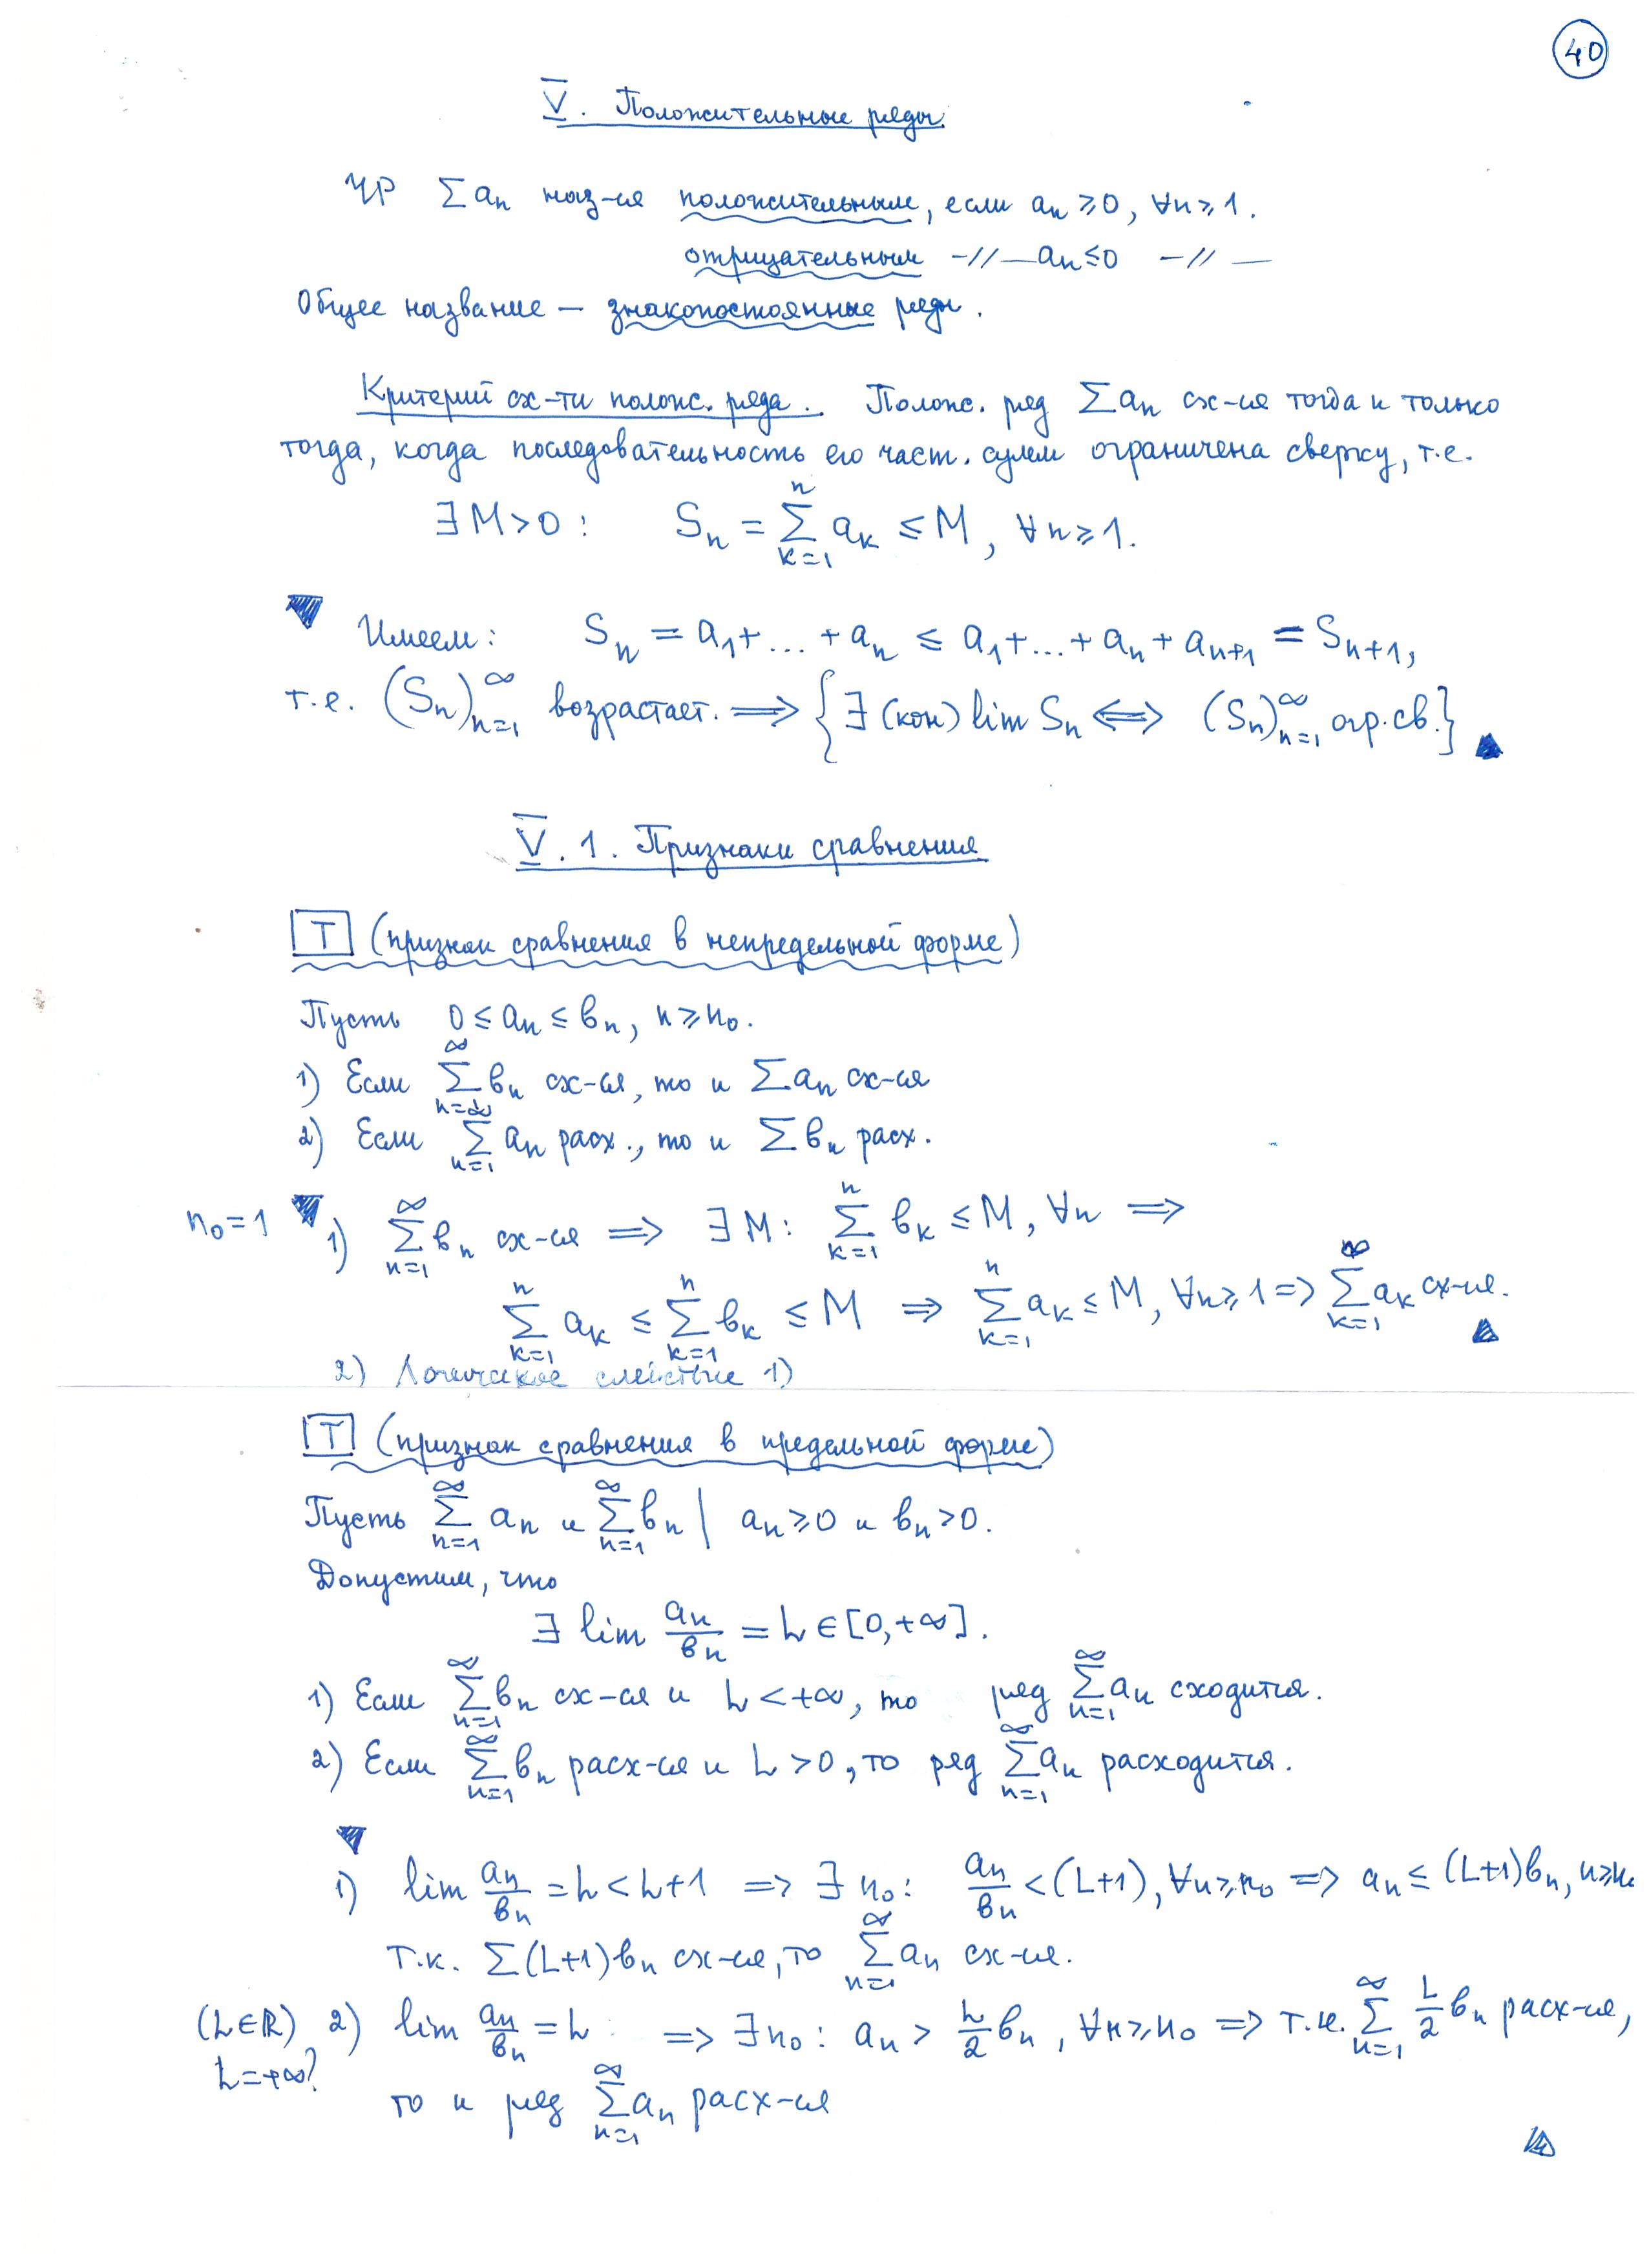 40
V. Положительные ряды
ЧР ∑aₙ наз-ся положительным, если aₙ ≥ 0, ∀n ≥ 1.
отрицательным –//— aₙ ≤ 0 –//—
Общее название — знакопостоянные ряды.
Критерий сх-ти полож. ряда. Полож. ряд ∑aₙ сх-ся тогда и только
тогда, когда последовательность его част. сумм ограничена сверху, т.е.
∃ M > 0 : Sₙ = ∑_{k=1}^{n} aₖ ≤ M, ∀n ≥ 1.
▼ Имеем: Sₙ = a₁ + ... + aₙ ≤ a₁ + ... + aₙ + aₙ₊₁ = Sₙ₊₁,
т.е. (Sₙ)_{n=1}^{∞} возрастает. ⟹ {∃ (кон) lim Sₙ ⟺ (Sₙ)_{n=1}^{∞} огр. св.} ▲
V. 1. Признаки сравнения
T (признак сравнения в непредельной форме)
Пусть 0 ≤ aₙ ≤ bₙ, n ≥ n₀.
1) Если ∑_{n=1}^{∞} bₙ сх-ся, то и ∑aₙ сх-ся
2) Если ∑_{n=1}^{∞} aₙ расх., то и ∑bₙ расх.
n₀ = 1 ▼ 1) ∑_{n=1}^{∞} bₙ сх-ся ⟹ ∃ M: ∑_{k=1}^{n} bₖ ≤ M, ∀n ⟹
∑_{k=1}^{n} aₖ ≤ ∑_{k=1}^{n} bₖ ≤ M ⟹ ∑_{k=1}^{n} aₖ ≤ M, ∀n ≥ 1 ⟹ ∑_{k=1}^{∞} aₖ сх-ся. ▲
2) Логическое следствие 1)
T (признак сравнения в предельной форме)
Пусть ∑_{n=1}^{∞} aₙ и ∑_{n=1}^{∞} bₙ | aₙ ≥ 0 и bₙ > 0.
Допустим, что
∃ lim aₙ/bₙ = L ∈ [0, +∞].
1) Если ∑_{n=1}^{∞} bₙ сх-ся и L < +∞, то ряд ∑_{n=1}^{∞} aₙ сходится.
2) Если ∑_{n=1}^{∞} bₙ расх-ся и L > 0, то ряд ∑_{n=1}^{∞} aₙ расходится.
▼
1) lim aₙ/bₙ = L < L+1 ⟹ ∃ n₀: aₙ/bₙ < (L+1), ∀n ≥ n₀ ⟹ aₙ ≤ (L+1)bₙ, n ≥ n₀
Т.к. ∑(L+1)bₙ сх-ся, то ∑_{n=1}^{∞} aₙ сх-ся.
(L∈ℝ) 2) lim aₙ/bₙ = L ⟹ ∃ n₀: aₙ > L/2 bₙ, ∀n ≥ n₀ ⟹ т.к. ∑_{n=1}^{∞} L/2 bₙ расх-ся,
L = +∞?
то и ряд ∑_{n=1}^{∞} aₙ расх-ся
▲